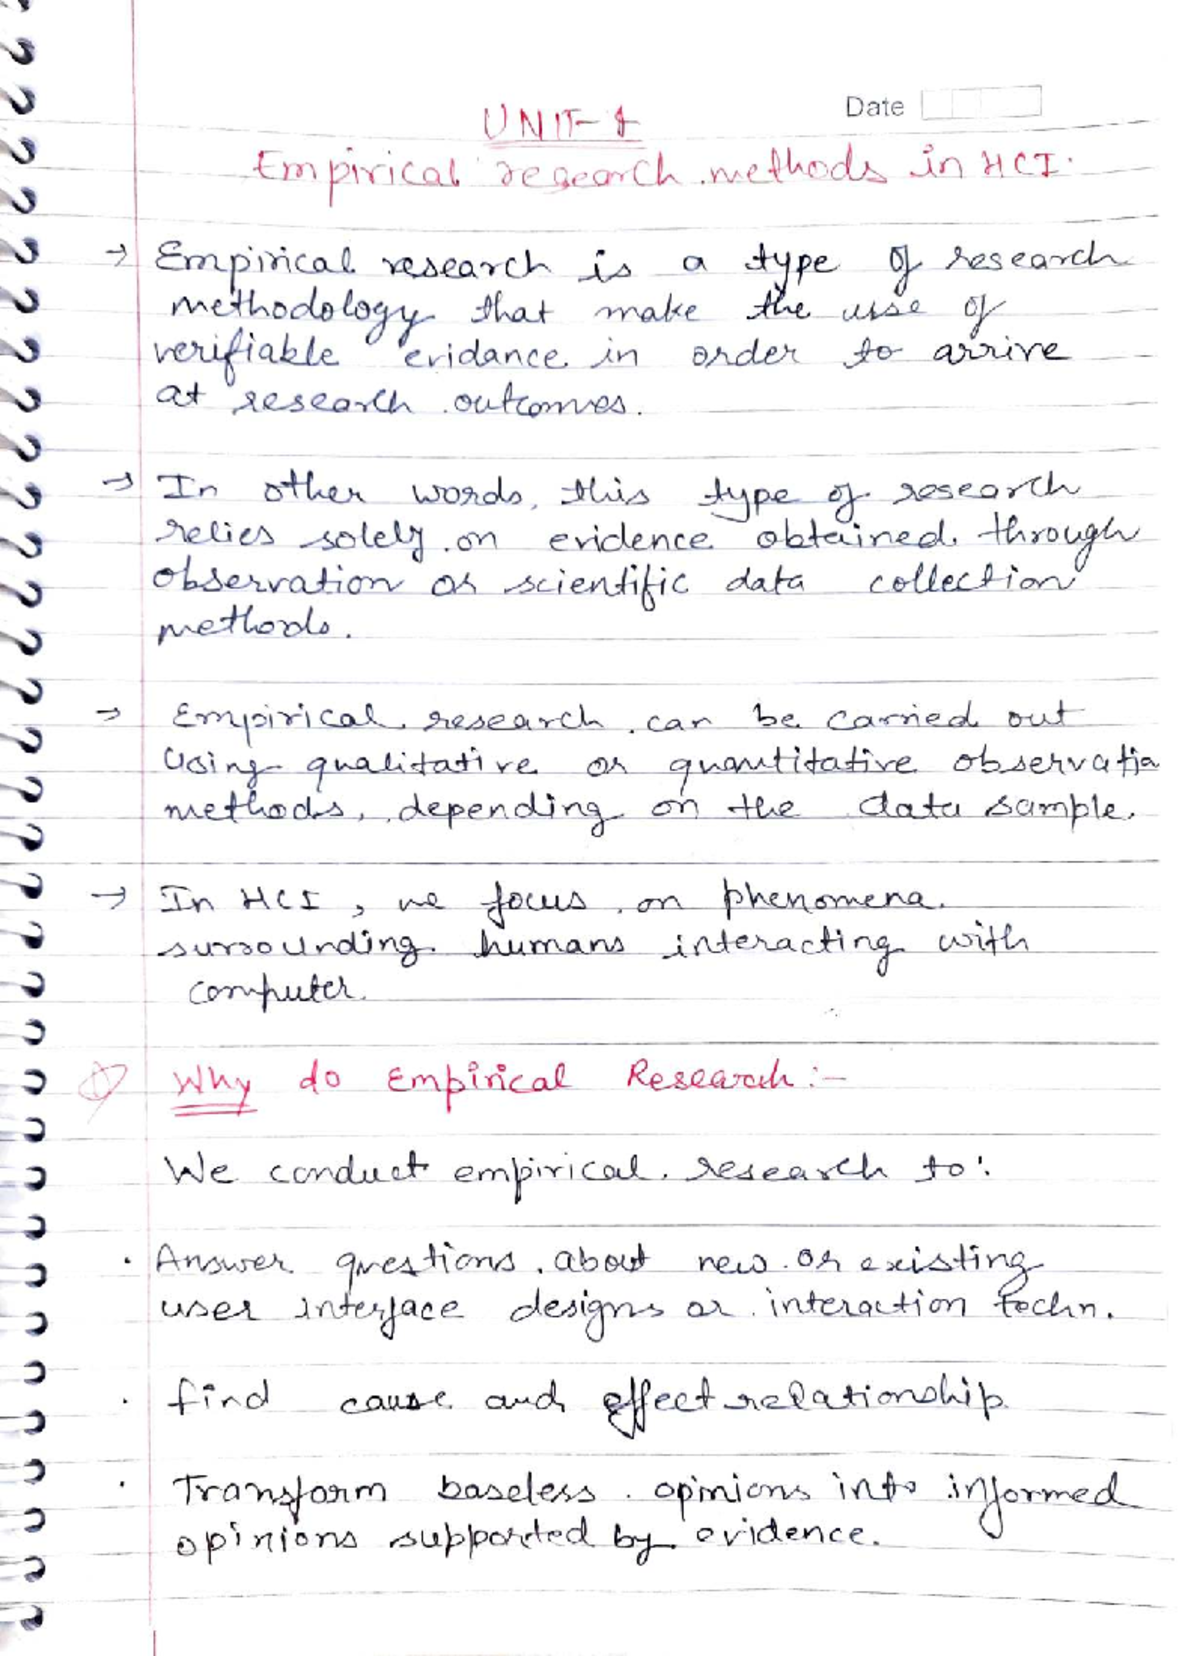 Date
UNIT-1
Empirical research methods in HCI.
→ Empirical research is a type of research
methodology that make the use of
verifiable evidance in order to arrive
at research outcomes.
→ In other words, this type of research
relies solely on evidence obtained through
observation or scientific data collection
methods.
→ Empirical research can be carried out
Using qualitative or quantitative observation
methods, depending on the data sample.
→ In HCI, we focus on phenomena
surrounding humans interacting with
computer.
Why do Empirical Research :-
We conduct empirical research to:
· Answer questions about new or existing
user interface designs or interaction techn.
· find cause and effect relationship
· Transform baseless opinions into informed
opinions supported by evidence.